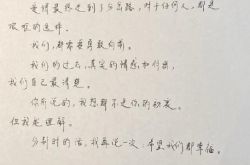 爱情最终走到了分岔路，对于任何人，都是
艰难的选择．
我们，都需要勇敢向前．
我们的过去，真实的情感和付出，
我们自己最清楚．
你所说的，我想都不是你的初衷．
但我能理解．
分别时的话，我再说一次：希望我们都幸福。